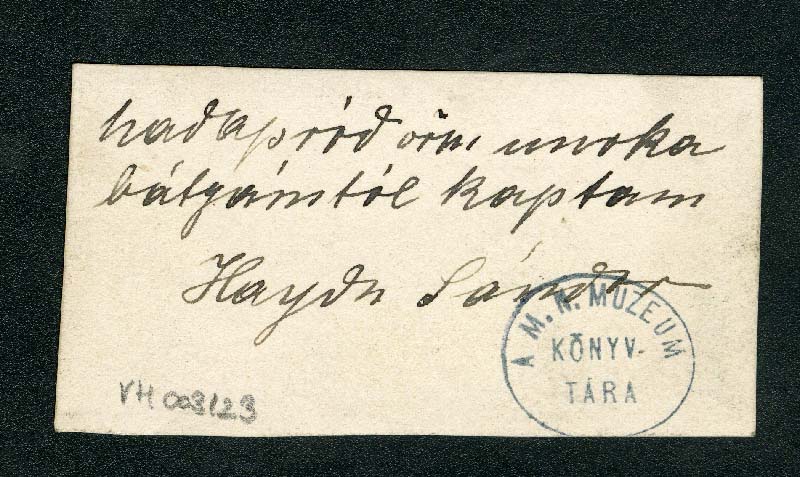 hadapród őrm unoka
bátyámtól kaptam
Haydu Sándor
A M. N. MUZEUM
KÖNYV-
TÁRA
VH 003/23